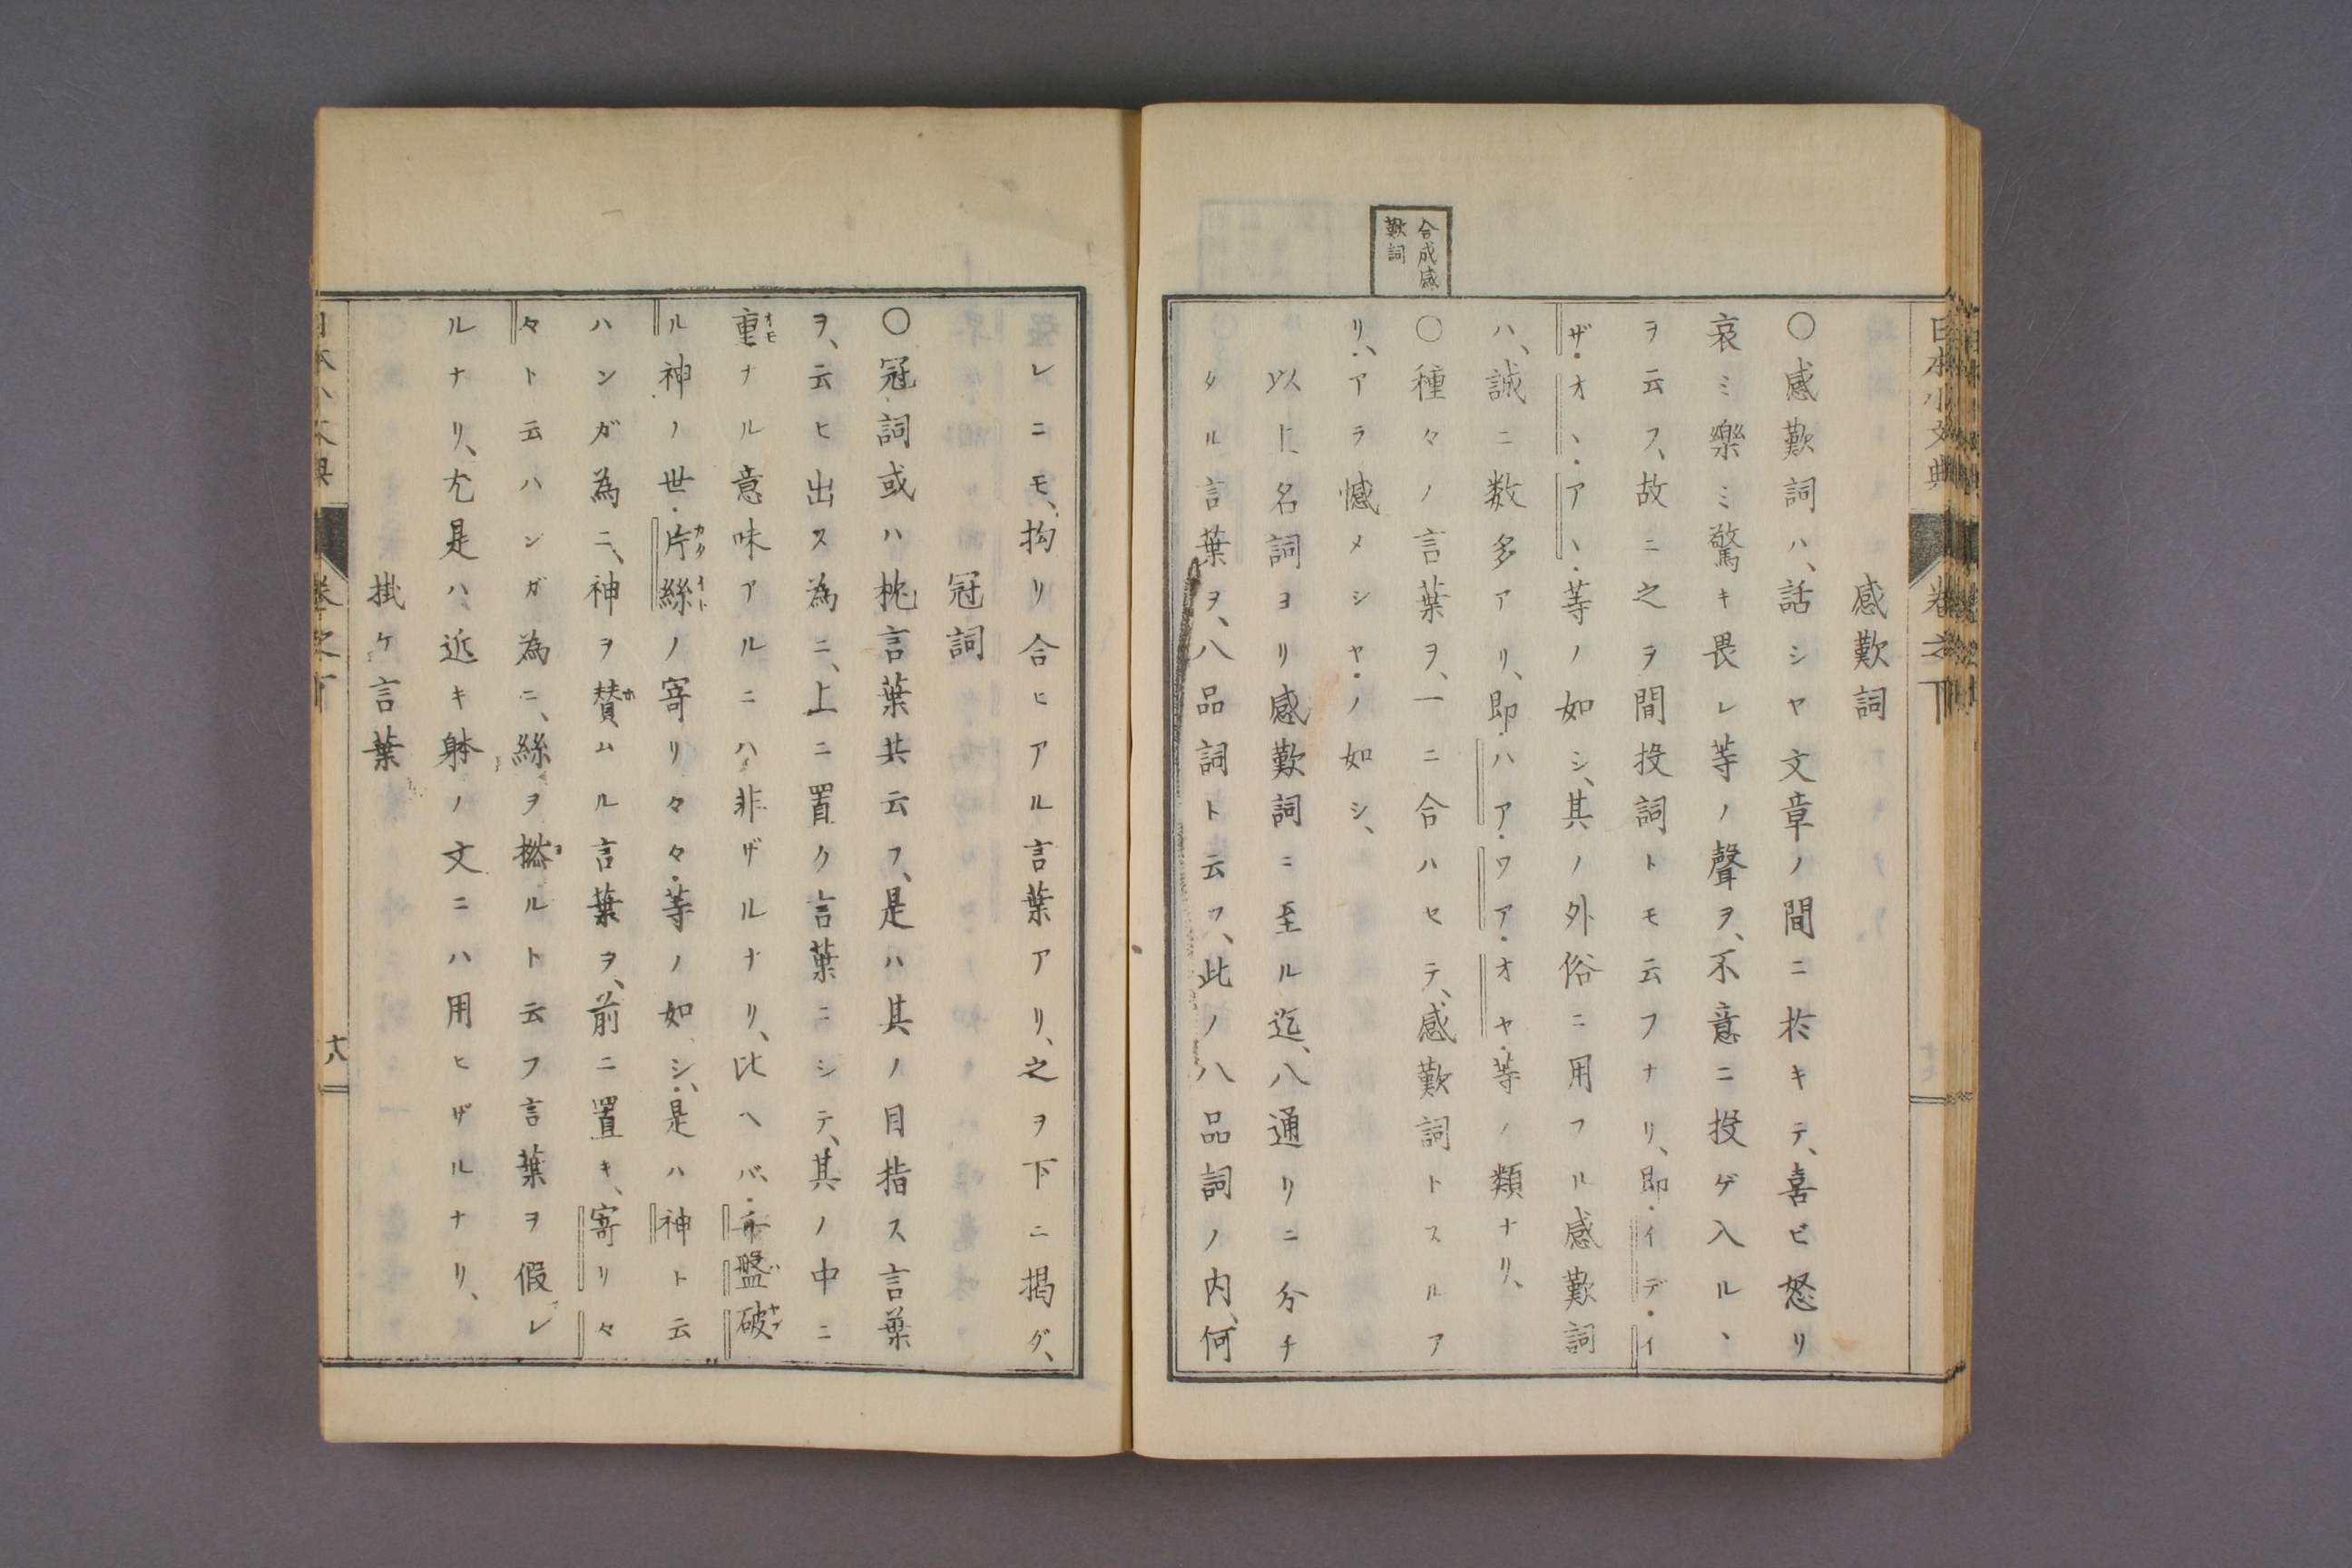 日本小文典 卷之下
感歎詞
〇感歎詞ハ、話シヤ文章ノ間ニ於キテ、喜ビ怒リ
哀ミ樂ミ驚キ畏レ等ノ聲ヲ、不意ニ投ゲ入ルヽ
ヲ云フ、故ニ之ヲ間投詞トモ云フナリ、即・イデ・イ
ザ・オヽ・アヽ・等ノ如シ、其ノ外俗ニ用フル感歎詞
ハ、誠ニ数多アリ、即・ハア・ワア・オヤ・等ノ類ナリ、
合成感
歎詞
〇種々ノ言葉ヲ、一ニ合ハセテ、感歎詞トスルア
リ、・アラ憾メシヤ・ノ如シ、
以上名詞ヨリ感歎詞ニ至ル迄、八通リニ分チ
タル言葉ヲ、八品詞ト云フ、此ノ八品詞ノ内、何
レニモ、拘リ合ヒアル言葉アリ、之ヲ下ニ掲グ、
冠詞
〇冠詞或ハ枕言葉共云フ、是ハ其ノ目指ス言葉
ヲ、云ヒ出ス為ニ、上ニ置ク言葉ニシテ、其ノ中ニ
重ナル意味アルニハ非ザルナリ、比ヘバ、・市盤破
ル神ノ世・片絲ノ寄リ々々・等ノ如シ、・是ハ神ト云
ハンガ為ニ、神ヲ賛ムル言葉ヲ、前ニ置キ、寄リ々
々ト云ハンガ為ニ、絲ヲ撚ルト云フ言葉ヲ假レ
ルナリ、尤是ハ、近キ躰ノ文ニハ用ヒザルナリ、
掛ケ言葉
卷之下
十八